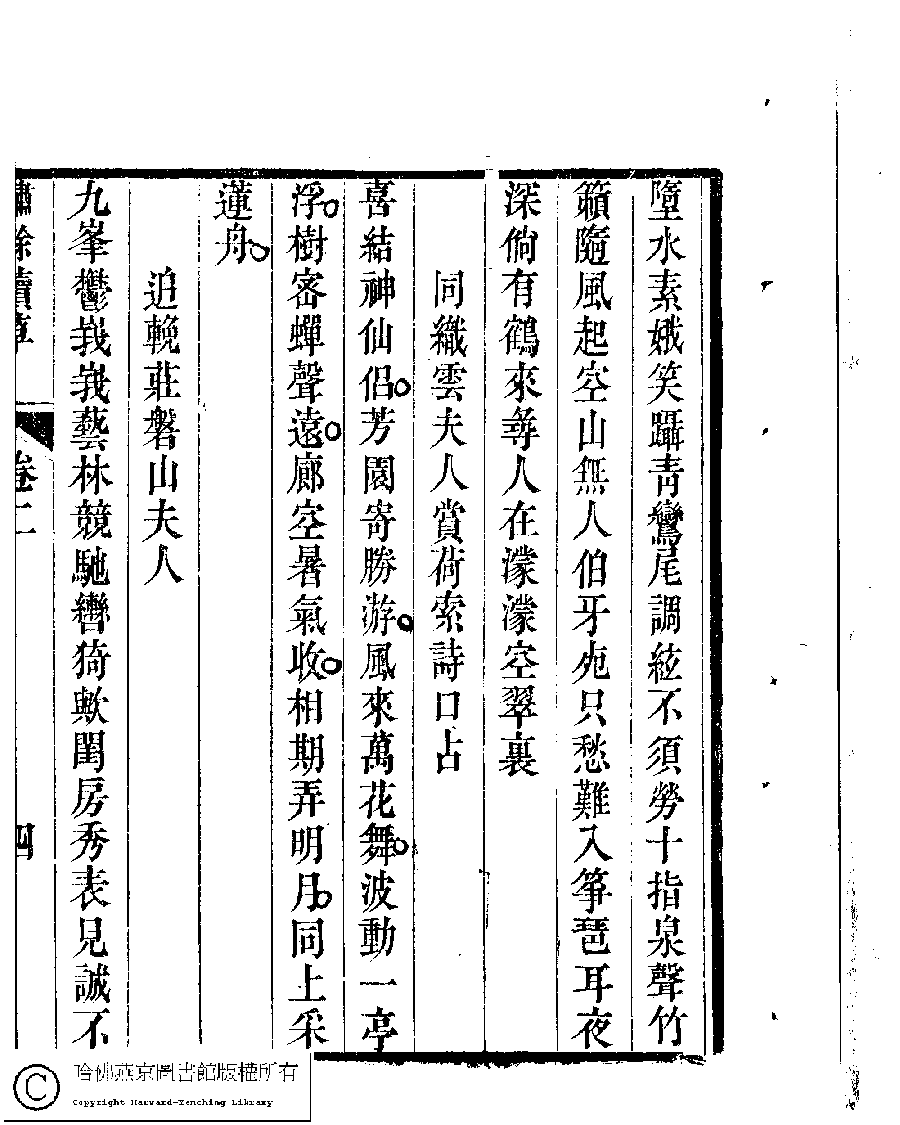 墮水素娥笑躡青鸞尾調絃不須勞十指泉聲竹
籟隨風起空山無人伯牙死只愁難入箏琶耳夜
深倘有鶴來尋人在濛濛空翠裏
同織雲夫人賞荷索詩口占
喜結神仙侶芳園寄勝游風來萬花舞波動一亭
浮樹密蟬聲遠廊空暑氣收相期弄明月同上采
蓮舟
追輓莊磐山夫人
九峯鬱峩峩藝林競馳轡猗歟閨房秀表見誠不
繡餘續草
卷二
四
哈佛燕京圖書館版權所有
Copyright Harvard-Yenching Library